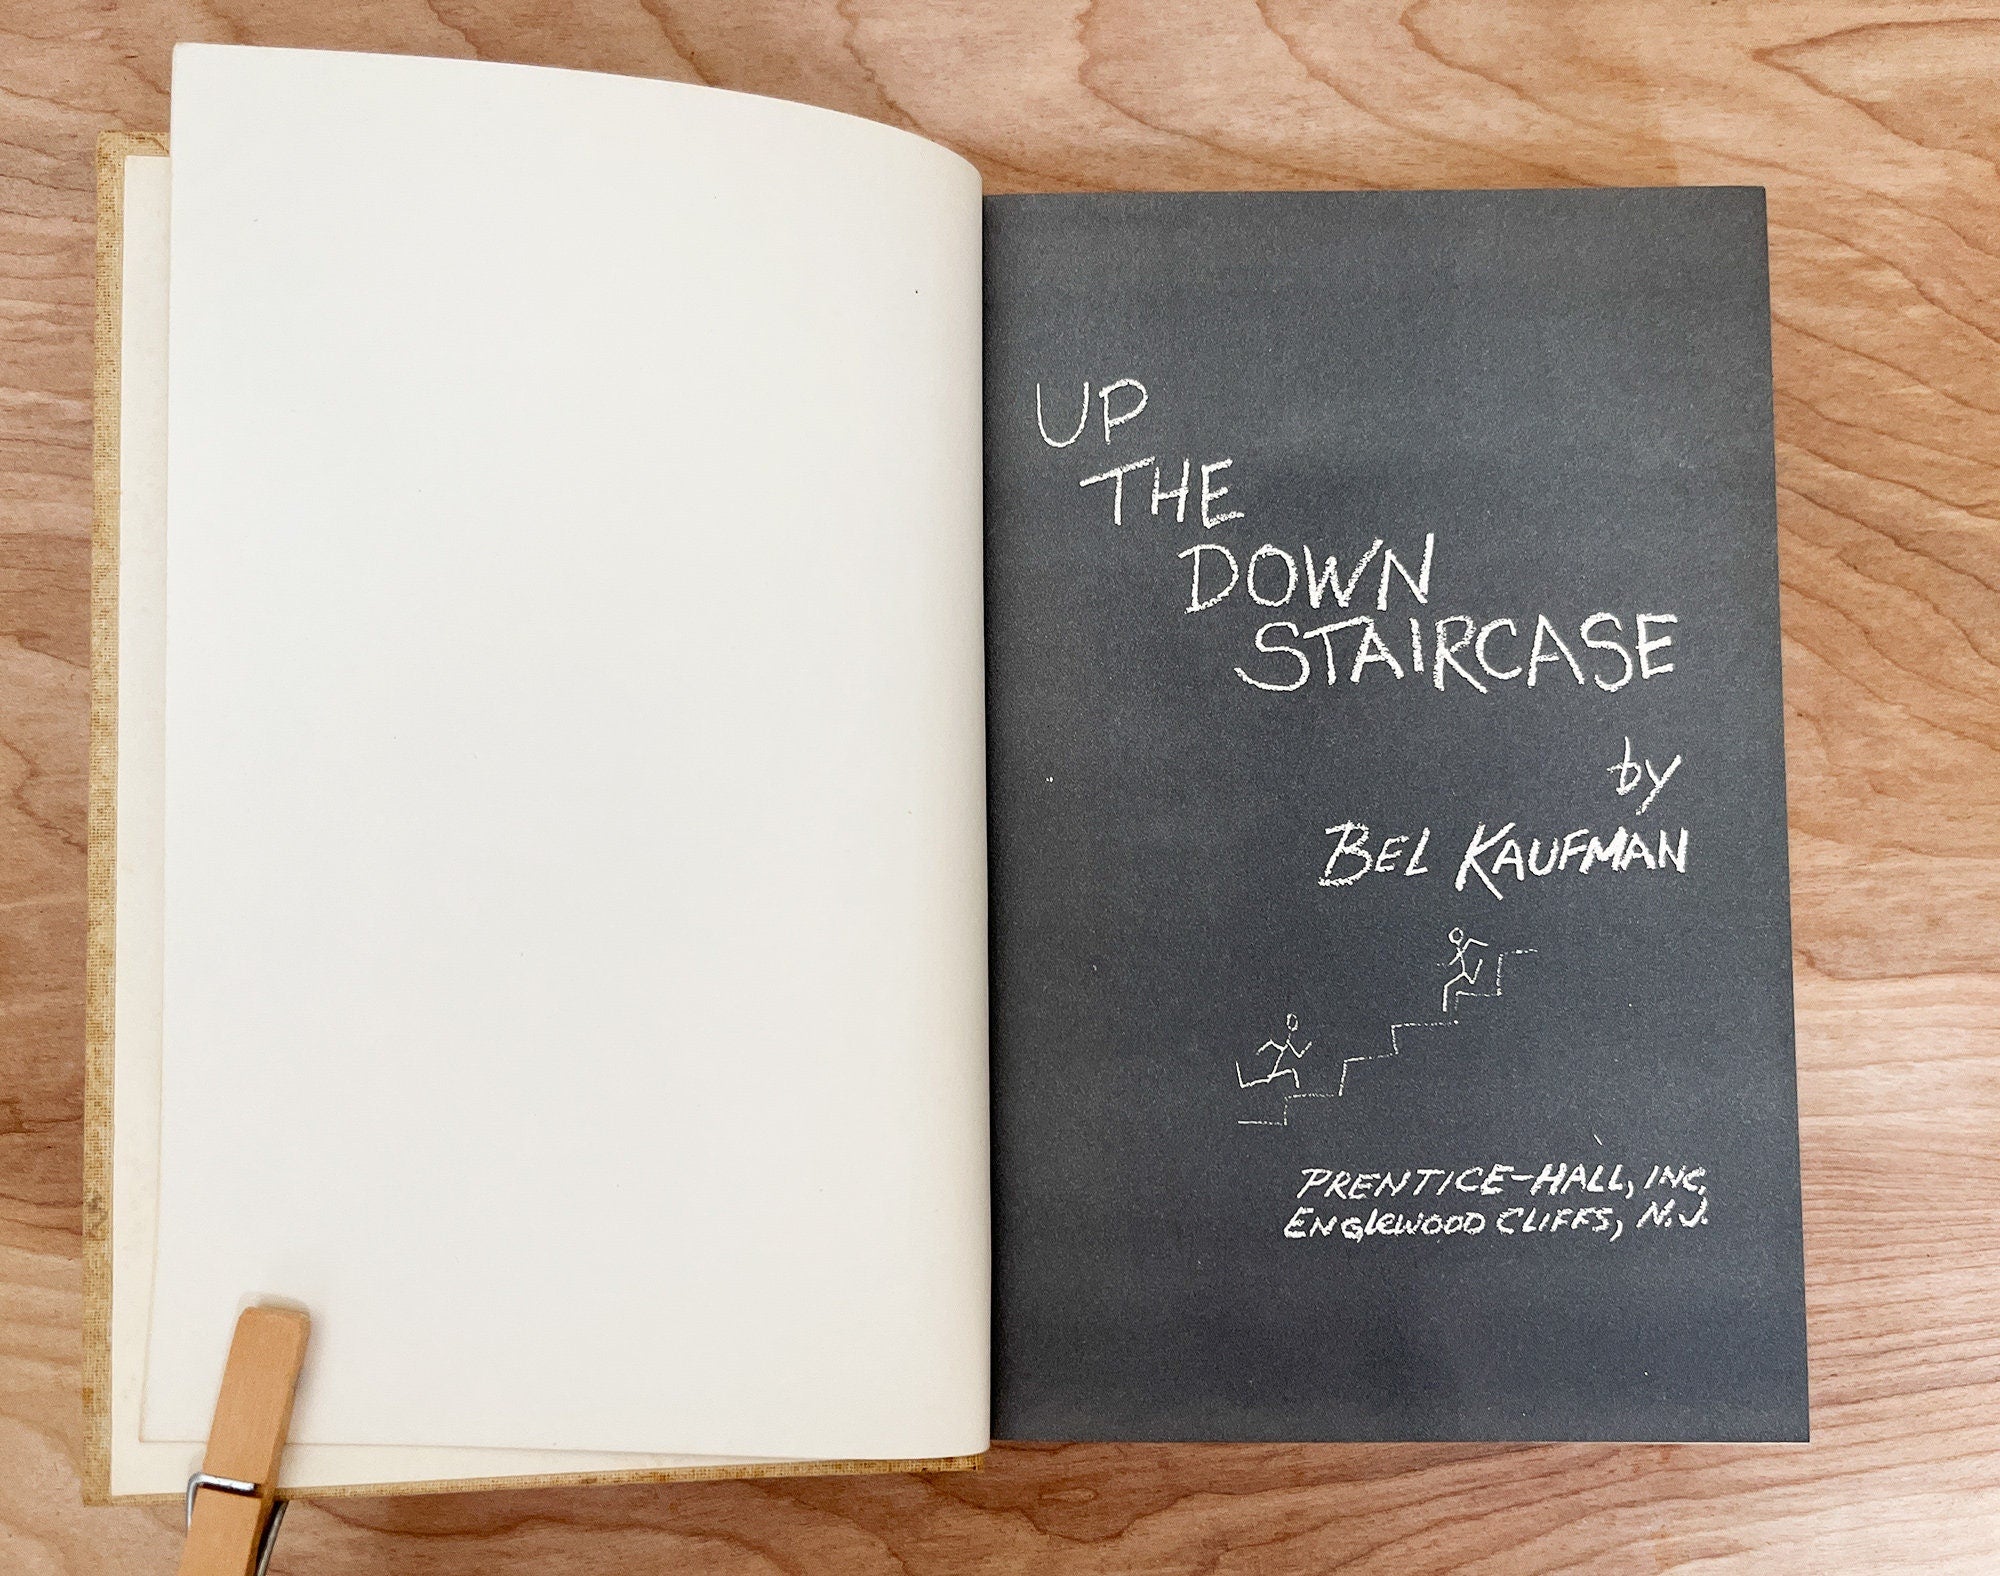 UP
THE
DOWN
STAIRCASE
by
BEL KAUFMAN
PRENTICE-HALL, INC,
ENGLEWOOD CLIFFS, N.J.